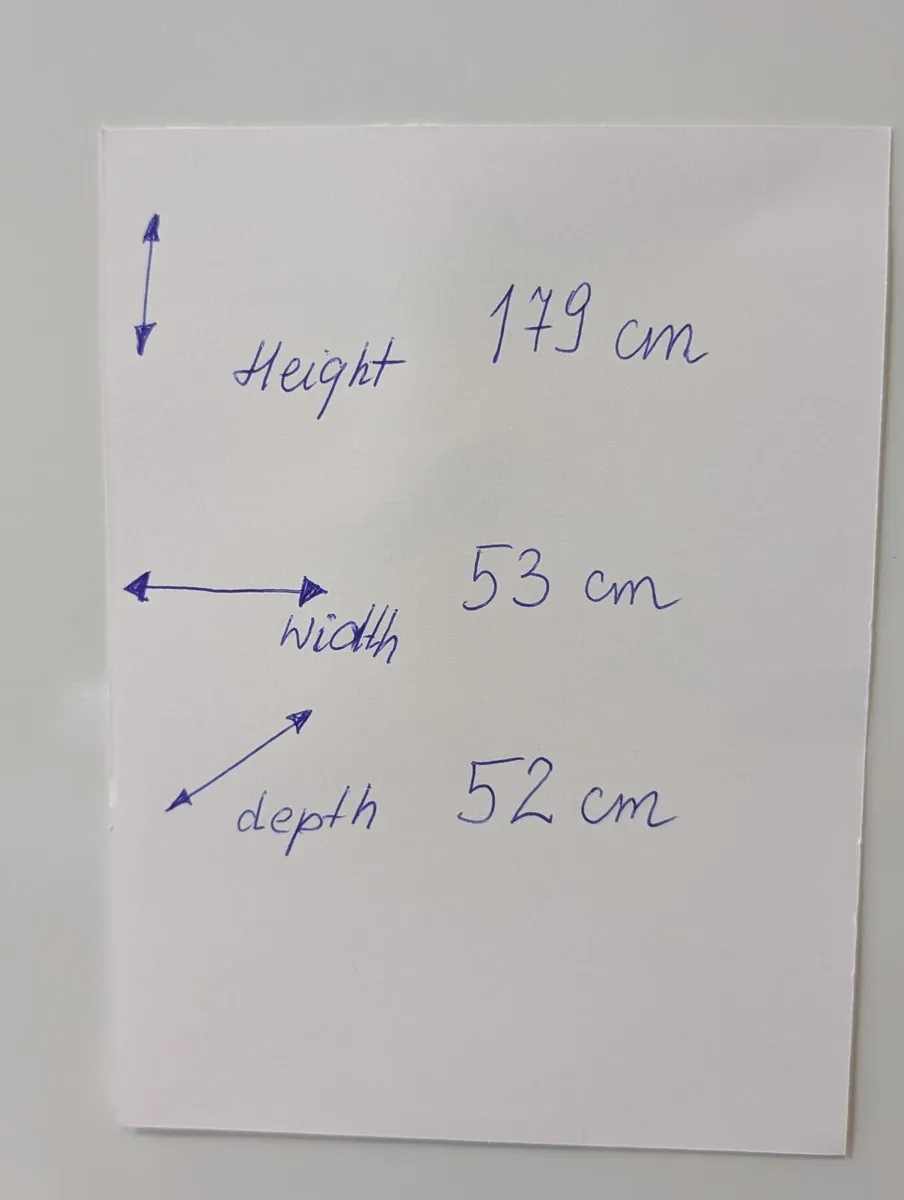 Height 179 cm
width 53 cm
depth 52 cm